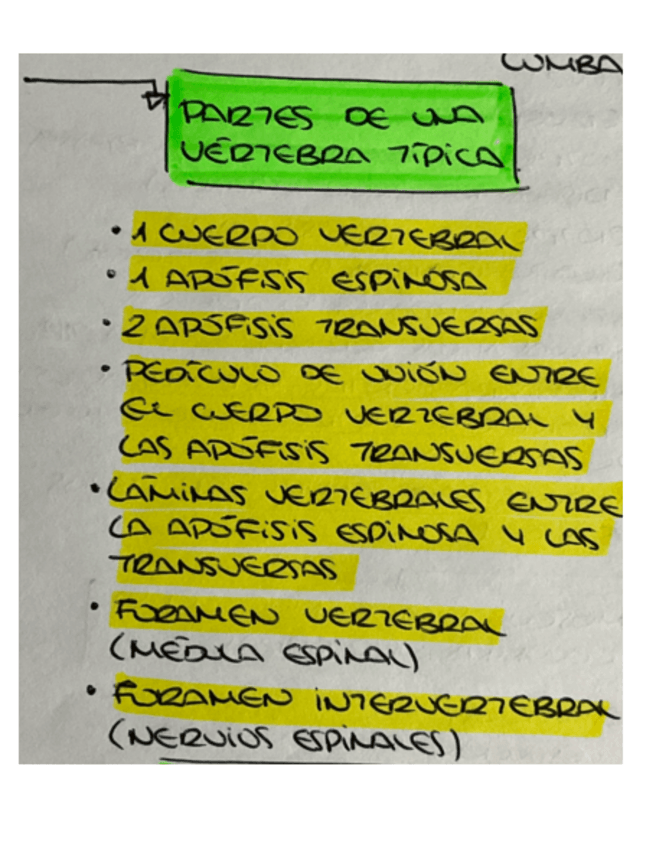 LUMBA
PARTES DE UNA
VÉRTEBRA TÍPICA
• 1 CUERPO VERTEBRAL
• 1 APÓFISIS ESPINOSA
• 2 APÓFISIS TRANSVERSAS
• PEDÍCULO DE UNIÓN ENTRE
EL CUERPO VERTEBRAL Y
LAS APÓFISIS TRANSVERSAS
• LÁMINAS VERTEBRALES ENTRE
LA APÓFISIS ESPINOSA Y LAS
TRANSVERSAS
• FORAMEN VERTEBRAL
(MÉDULA ESPINAL)
• FORAMEN INTERVERTEBRAL
(NERVIOS ESPINALES)